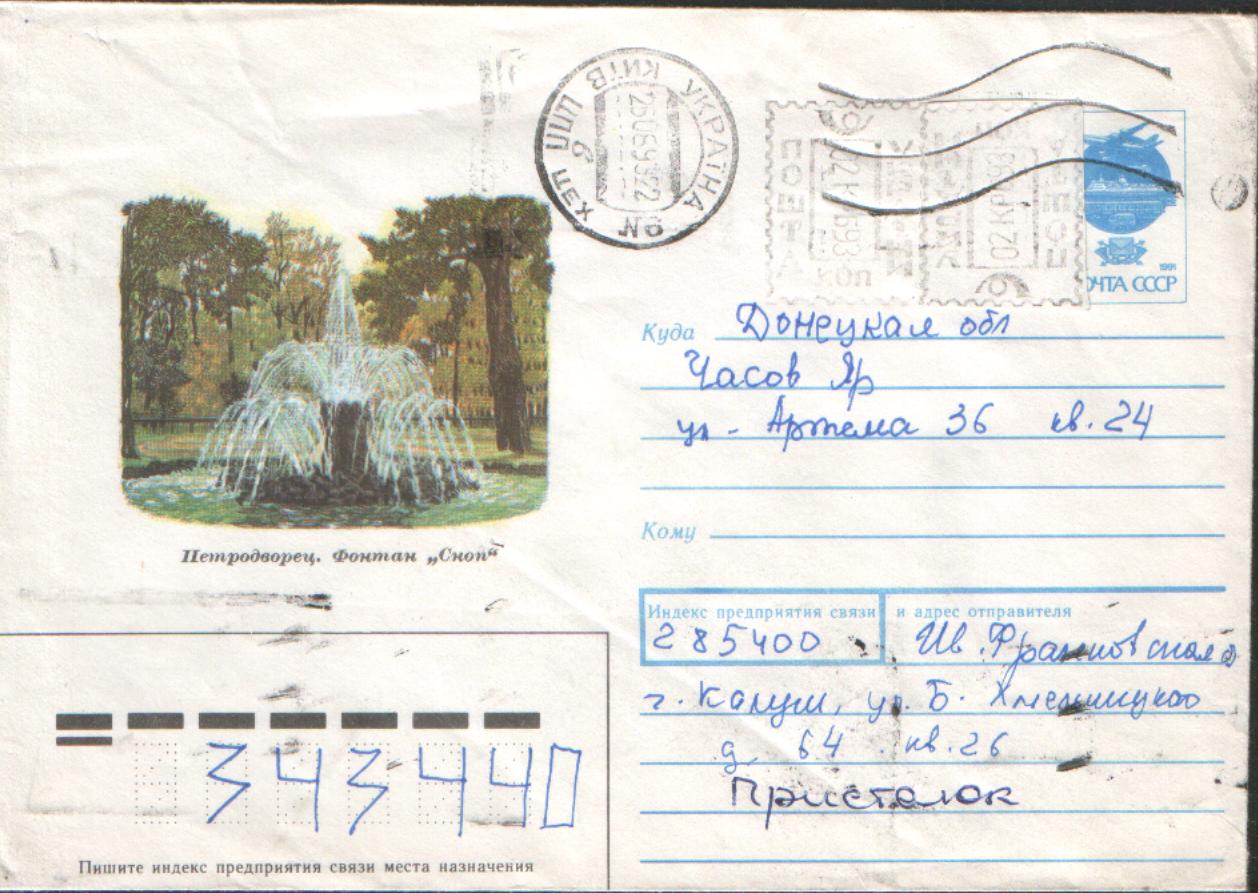 УКРАЇНА КИЇВ ЦЕХ ПЩП
250693 22
№
ПОШТА
коп
1991
ПОЧТА СССР
Куда Донецкая обл
Часов Яр
ул. Артема 36 кв. 24
Кому
Петродворец. Фонтан „Сноп“
Индекс предприятия связи и адрес отправителя
285400 Ив. Франковская о
г. Калуш, ул. Б. Хмельницкого
д. 64 кв. 26
Присталюк
343440
Пишите индекс предприятия связи места назначения